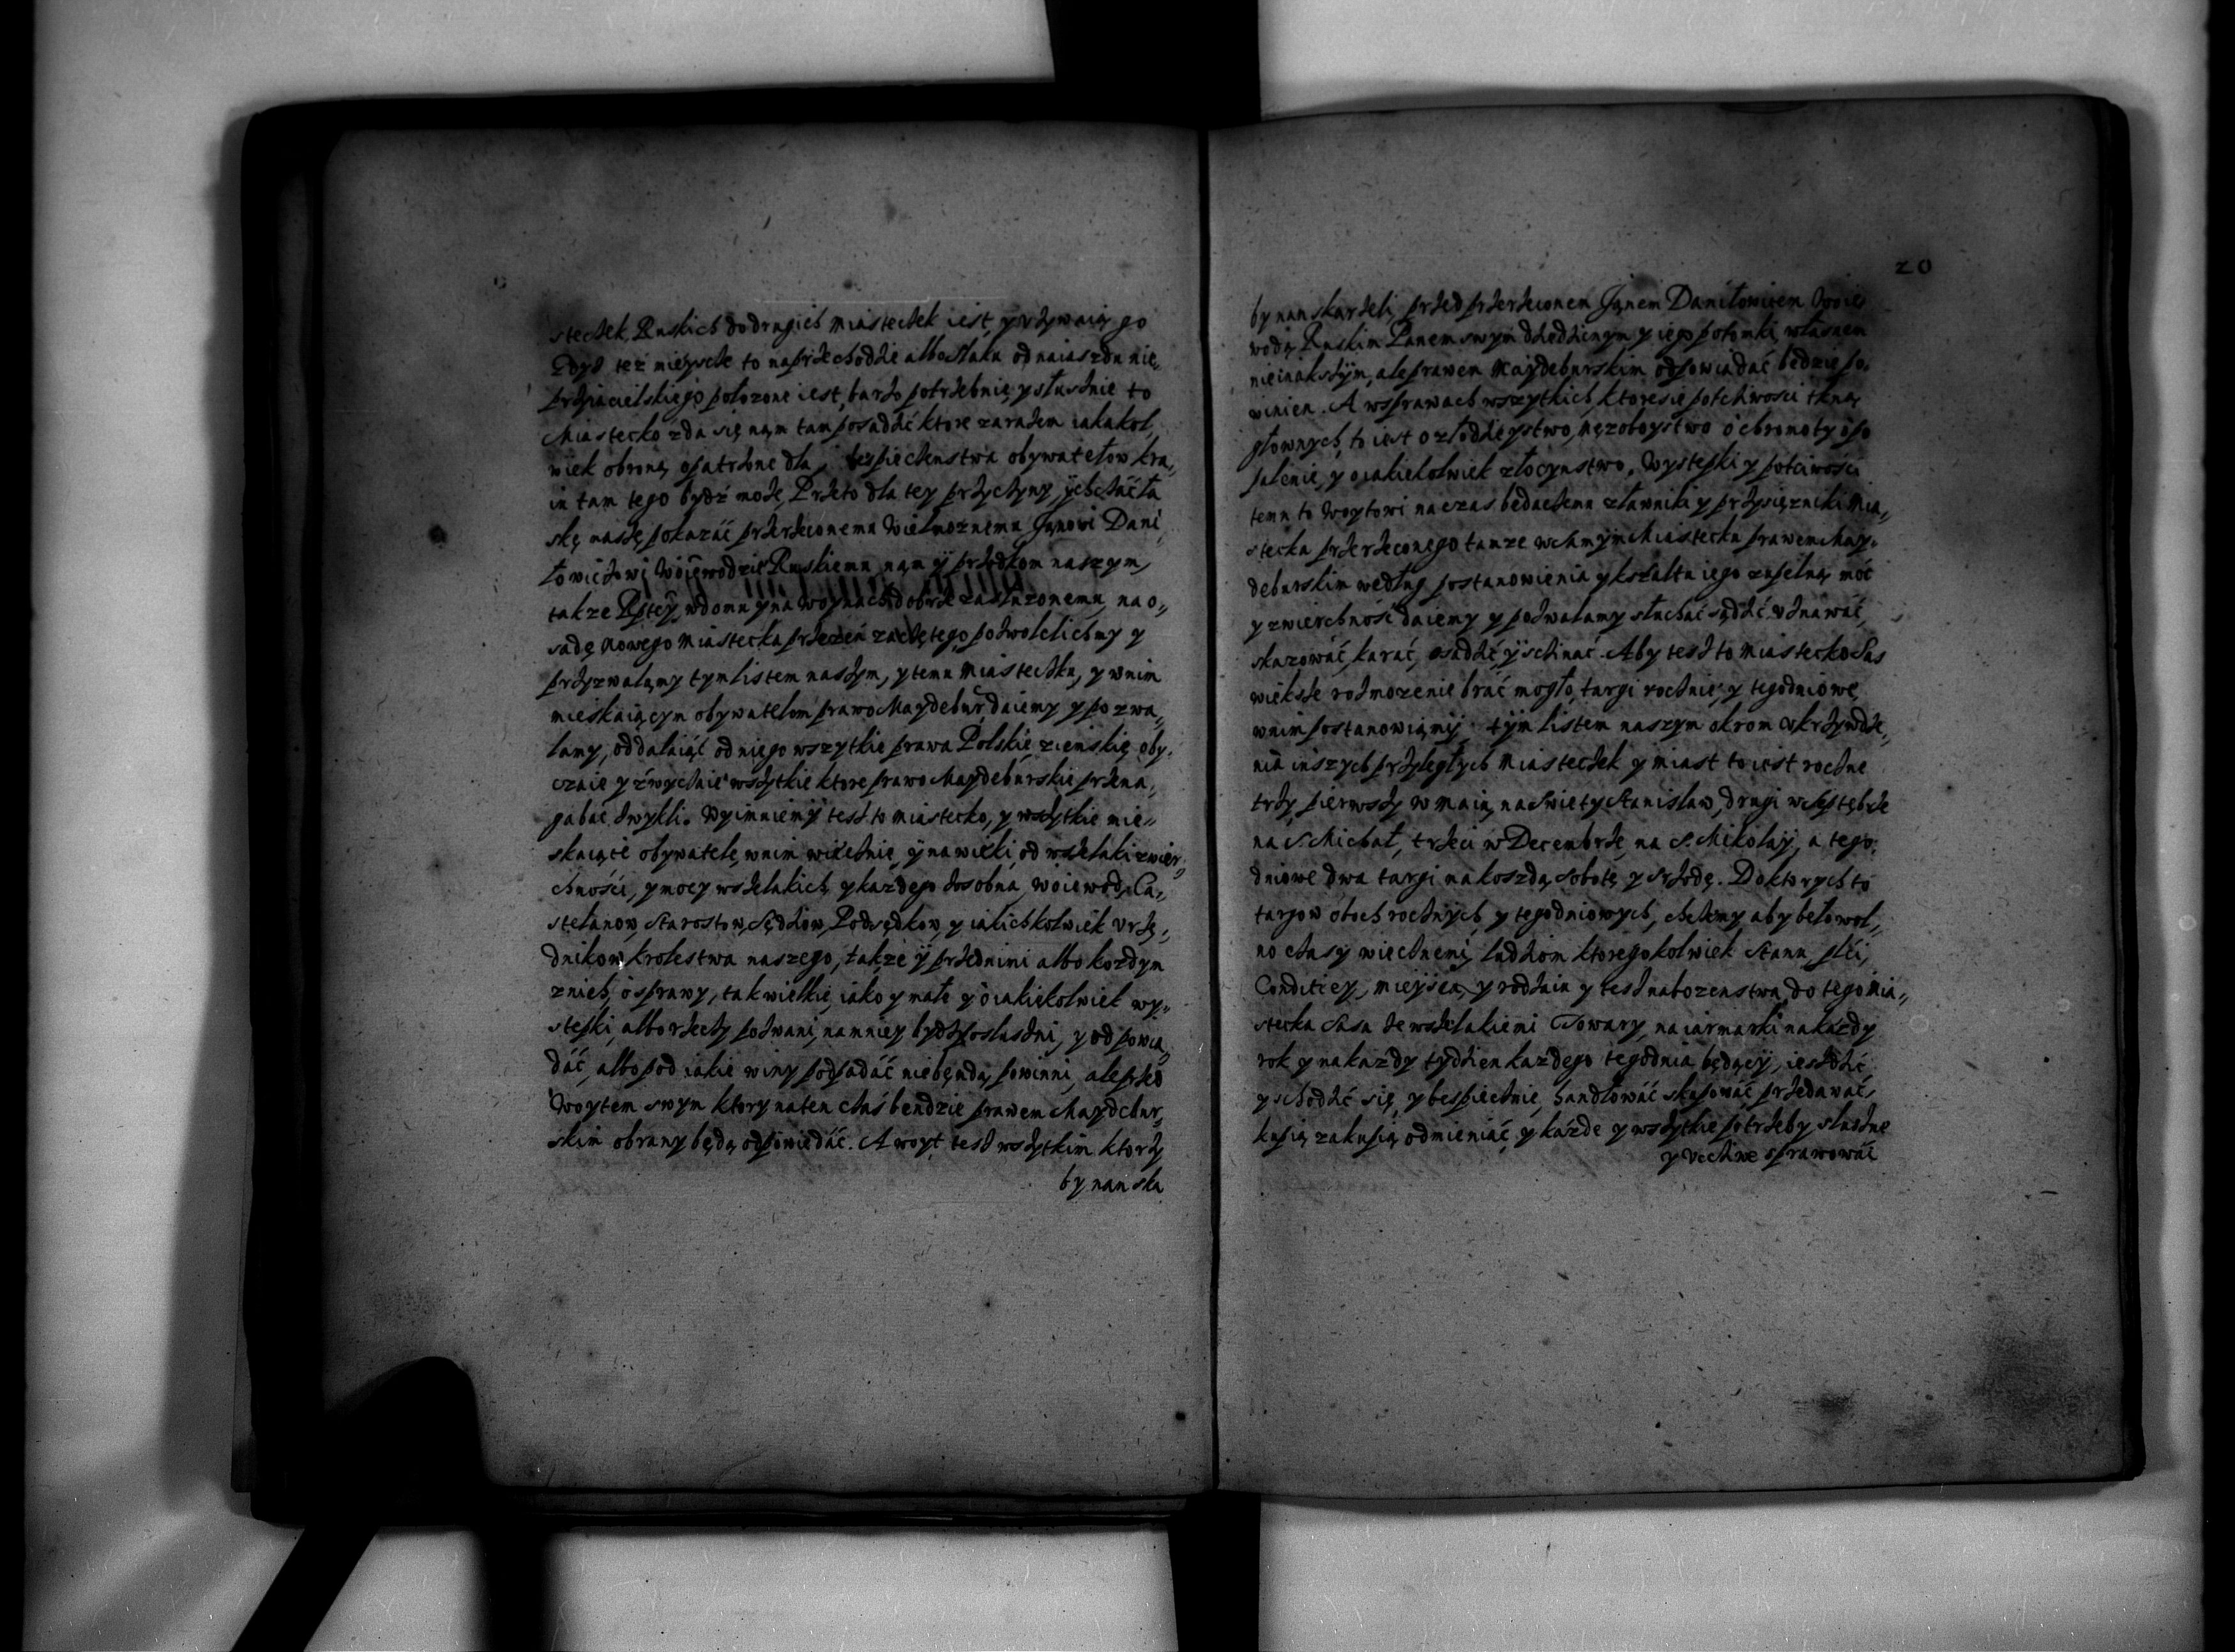 steczek Ruskich do drugich miasteczek iest, y vzywaią go
Gdyż też mieysce to na przechodzie albo szlaku od naiazdu nie„
przyiacielskiego położone iest, barzo potrzebnie y słusznie to
Miastecko zda się nąm tam posadzić ktore zarazem iakakol„
wiek obroną opatrzone dla bespieczenstwa obywatelow kra„
in tam tego bydź może, Przeto dla tey przyczyny, y chcąc ła
skę naszę pokazać przerzeconemu Wielmoznemu Janowi Dani„
łowiczowi Woiewodzie Ruskiemu nąm ÿ przodkom naszym,
takze Rptey w domu y na woynach dobrze zasłuzonemu, na o„
sadę nowego Miastecka przezeń zaczętego pozwolelichmy y
przyzwalamy tym listem naszym, y temu Miasteczku, y w nim
mieskaiącym obywatelom prawo Maydebur, daiemy y pozwa„
lamy, oddalaiąc od niego wszytkie prawa Polskie ziemskie oby„
czaie y zwyczaie wszytkie ktore prawo Maydeburskie przena„
gabac zwykli. Wyimuiemy tesz to miastecko, y wszytkie mie„
skaiące obywatele w nim wiecznie, y na wieki, od wszelaki zwier„
chności, y mocy wszelakich y kazdego zosobna, woiewod, Ca„
stelanow, Starostow, Sędziow, Podsędkow, y iakichkolwiek vrzę„
dnikow krolestwa naszego, także ÿ przednimi albo kozdym
znich, o sprawy, tak wielkie, iako y małe y o iakiekolwiek wy„
stepki, albo rzeczy pozwani, namniey bydz posłuszni, y odpowia„
dać, albo pod iakie winy podpadać niebęndą powinni, ale przed
Woytem swym ktory na ten czas bendzie prawem Maydebur„
skim obrany będą odpowiedać. A woyt tesz wszytkim ktorzy
by nan ska
20
by nan skarzeli, przed przerzeconem Janem Daniłowicem Woie„
wodą Ruskim Panem swym dziedzicnym y iego potomki własnem
nieinakszÿm, ale prawem Maydeburskim odpowiadać bedzie po„
winien. A w sprawach wszytkich, ktore się poćciwości tkną
głownych, to iest o złodzieystwo, męzoboystwo ochromoty o po
palenie, y o iakiekolwiek złocynstwo, Wystepki y poćciwości
temu to Woytowi na czas bedacemu z ławniki y przysięzniki Mia„
stecka przerzeconego tamze w Miastecku prawem May„
deburskim według postanowienia y kształtu iego zupełną móc
y zwierchność daiemy y pozwalamy słuchać sądzić vznawać,
skazować, karać, osadzić, ÿ scinać. Aby tesz to Miastecko Sas
większe rozmozenie brać mogło, targi roczne, y tegodniowe
w nim postanowiąmÿ tÿm listem naszym okrom vkrzywdze„
nia inszych przyległych Miasteczek y miast to iest roczne
trzy, pierwszy w Maiu, na Swiety Stanislaw, drugi w Septębrze
na S. Michał, trzeci w Decembrze, na S. Mikołaÿ, a tego„
dniowe dwa targi na koszdą sobotę y srzodę. Do ktorych to
targow oboch rocznych, y tegodniowych, chcemy aby beło wol„
no czasy wiecznemi, ludziom ktoregokolwiek stanu, płći,
Conditiey, mieysca, y rodzaiu y tesz nabozenstwa, do tego Mia„
stecka Sasa ze wszelakiemi Towary, na iarmarki na kazdy
rok y na kazdy tydzien kazdego tegodnia będącÿ, iezdzić
y schodzić się, y bespiecznie, handłować skupować, przedawać,
kupią zakupią odmieniać, y kazde y wszytkie potrzeby słuszne
y vcciwe sprawować